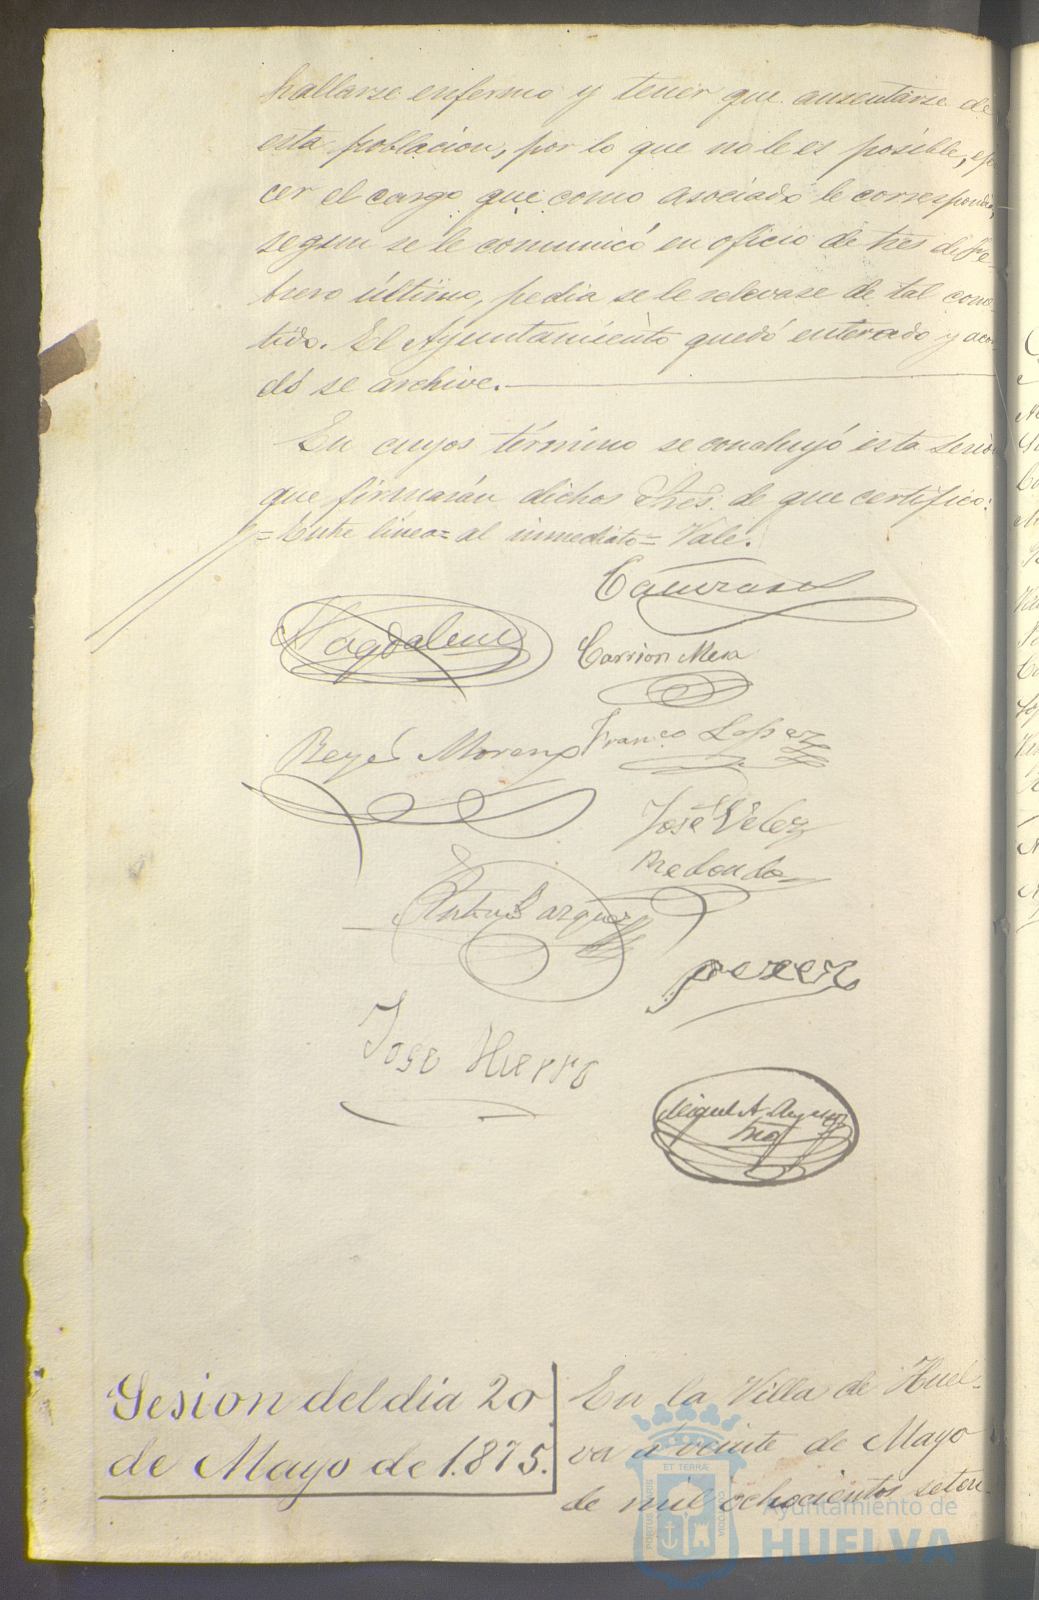 hallarse enfermo y tener que ausentarse de
esta poblacion, por lo que no le es posible, eger
cer el cargo que como asociado le corresponde,
segun se le comunicó en oficio de tres de Fe-
brero último, pedia se le relevase de tal come
tido. El Ayuntamiento quedó enterado y acor
dó se archive.
En cuyos término se concluyó esta sesion
que firmarán dichos Sres. de que certifico:
=Entre linea= al inmediato= Vale.
Magdalena
Carrion Mesa
Reyes Moreno
Franco Lopez
José Velez
Redondo
Antº Barquez
perez
Jose Hierro
Miguel A.
Srio
Sesion del dia 20
de Mayo de 1.875.
En la Villa de Huel-
va a veinte de Mayo
de mil ochocientos seten-
ET TERRÆ
PORTUS MARIS
CUSTODIA
Ayuntamiento de
HUELVA